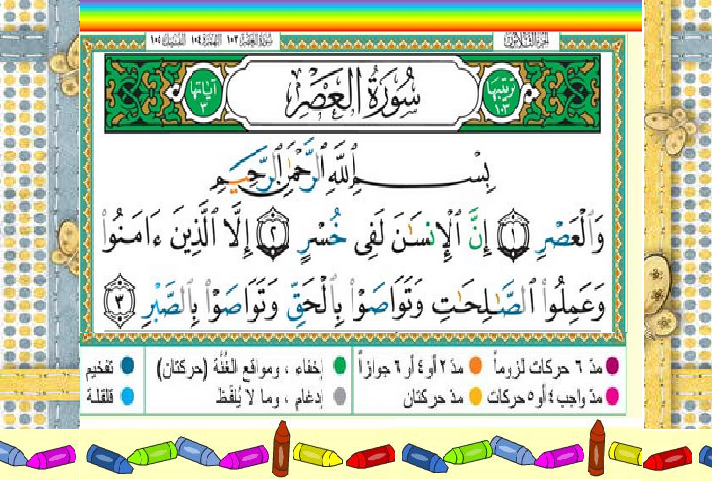 الجزء الثلاثون سورة العصر ١٠٣ الهمزة ١٠٤
ترتيبها ١٠٣ سُورَةُ العَصْرِ آياتها ٣
بِسْمِ ٱللَّهِ ٱلرَّحْمَٰنِ ٱلرَّحِيمِ
وَٱلْعَصْرِ ١ إِنَّ ٱلْإِنسَٰنَ لَفِى خُسْرٍ ٢ إِلَّا ٱلَّذِينَ ءَامَنُوا۟
وَعَمِلُوا۟ ٱلصَّٰلِحَٰتِ وَتَوَاصَوْا۟ بِٱلْحَقِّ وَتَوَاصَوْا۟ بِٱلصَّبْرِ ٣
مدّ ٦ حركات لزوماً مدّ ٢ أو ٤ أو ٦ جوازاً إخفاء ، ومواقع الغُنَّة (حركتان) تفخيم
مدّ واجب ٤ أو ٥ حركات مدّ حركتان إدغام ، وما لا يُلفَظ قلقلة